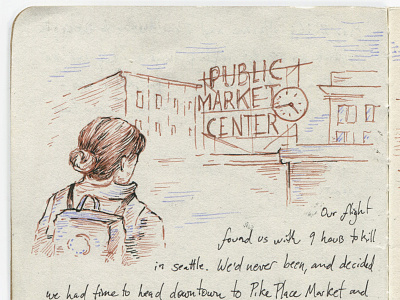 PUBLIC
MARKET
CENTER
Our flight
found us with 9 hours to kill
in seattle. We'd never been, and decided
we had time to head downtown to Pike Place Market and